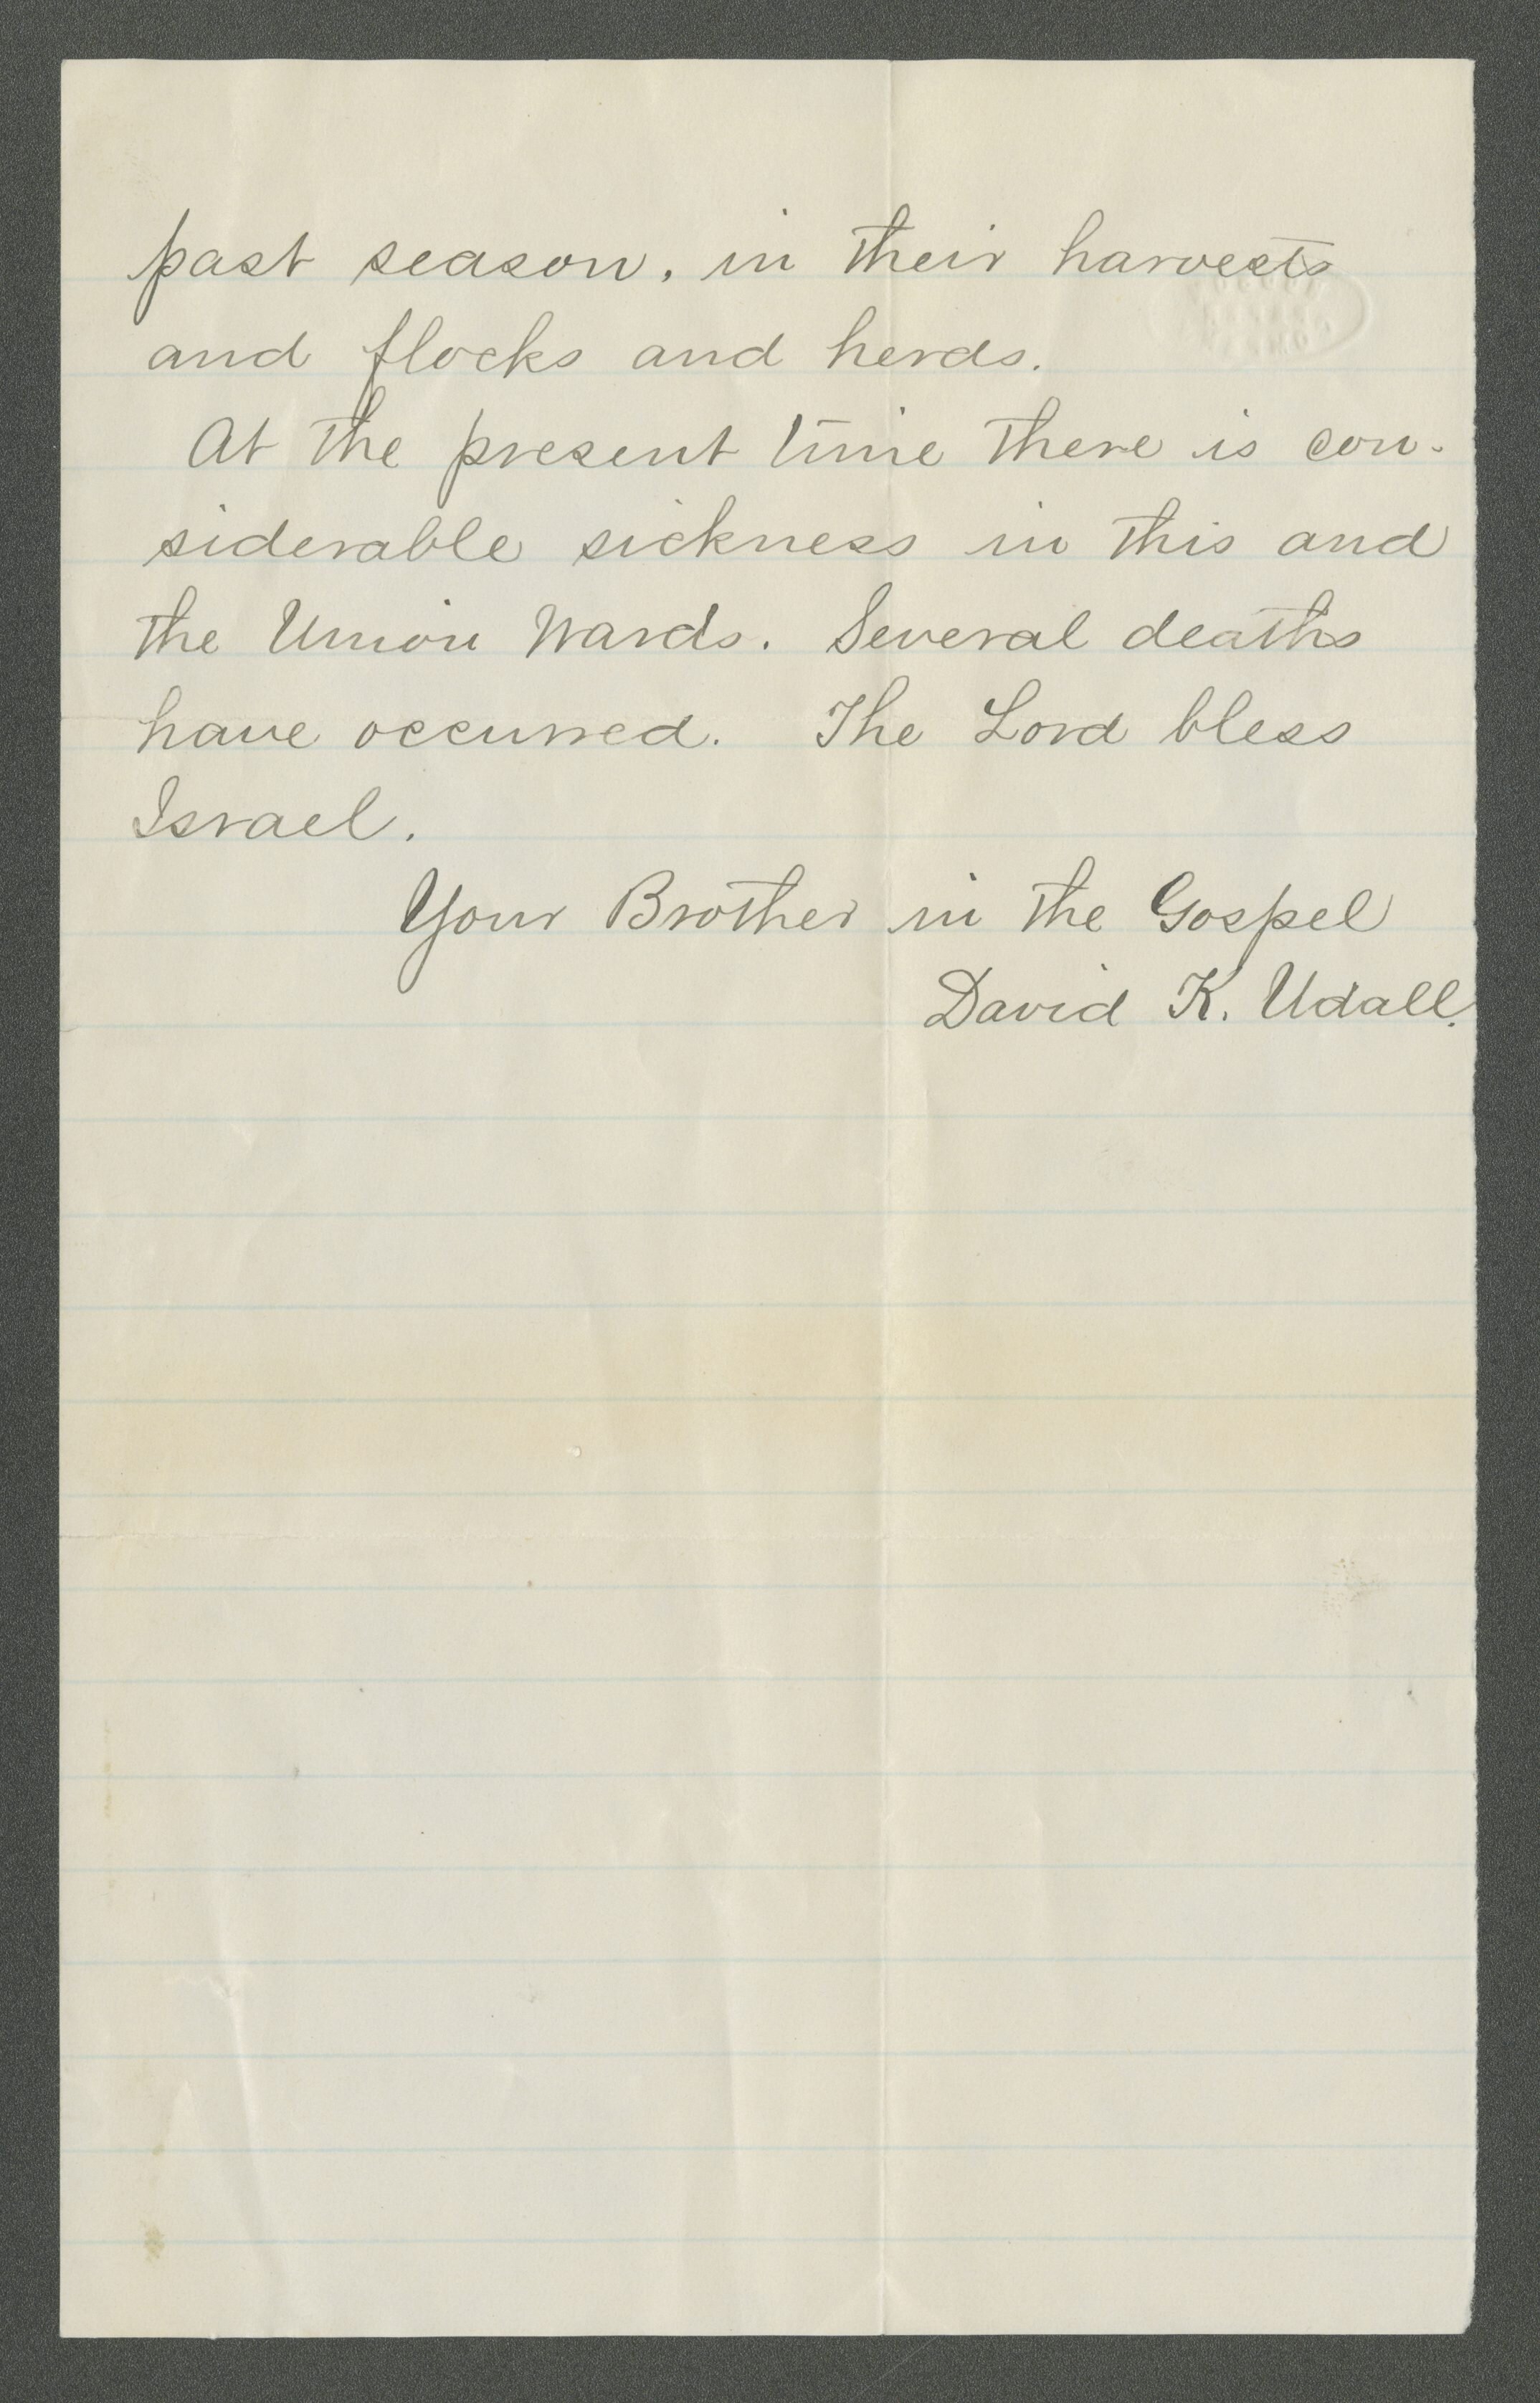 past season, in their harvests
and flocks and herds.
At the present time there is con-
siderable sickness in this and
the Union Wards. Several deaths
have occurred. The Lord bless
Israel.
Your Brother in the Gospel
David K. Udall.